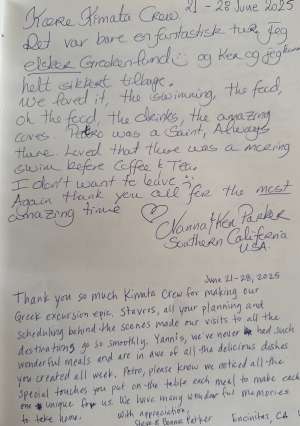 Kære Kimata Crew 21 - 28 June 2025
Det var bare en fantastisk tur. Jeg
elsker Grækenland :) og Ken og jeg kommer
helt sikkert tilbage.
We loved it, the swimming, the food,
oh the food, the drinks, the amazing
caves. Petro was a Saint, Always
there. Loved that there was a morning
swim before Coffee & Tea.
I don't want to leave
Again thank you all for the most
amazing time ♡
Nanna & Ken Parker
Southern California
U.S.A.
June 21-28, 2025
Thank you so much Kimata Crew for making our
Greek excursion epic. Stavros, all your planning and
scheduling behind the scenes made our visits to all the
destinations go so smoothly. Yannis, we've never had such
wonderful meals and are in awe of all the delicious dishes
you created all week. Petro, please know we noticed all the
special touches you put on the table each meal to make each
one unique for us. We have many wonderful memories
to take home.
With appreciation,
Steve & Bonnie Parker Encinitas, CA